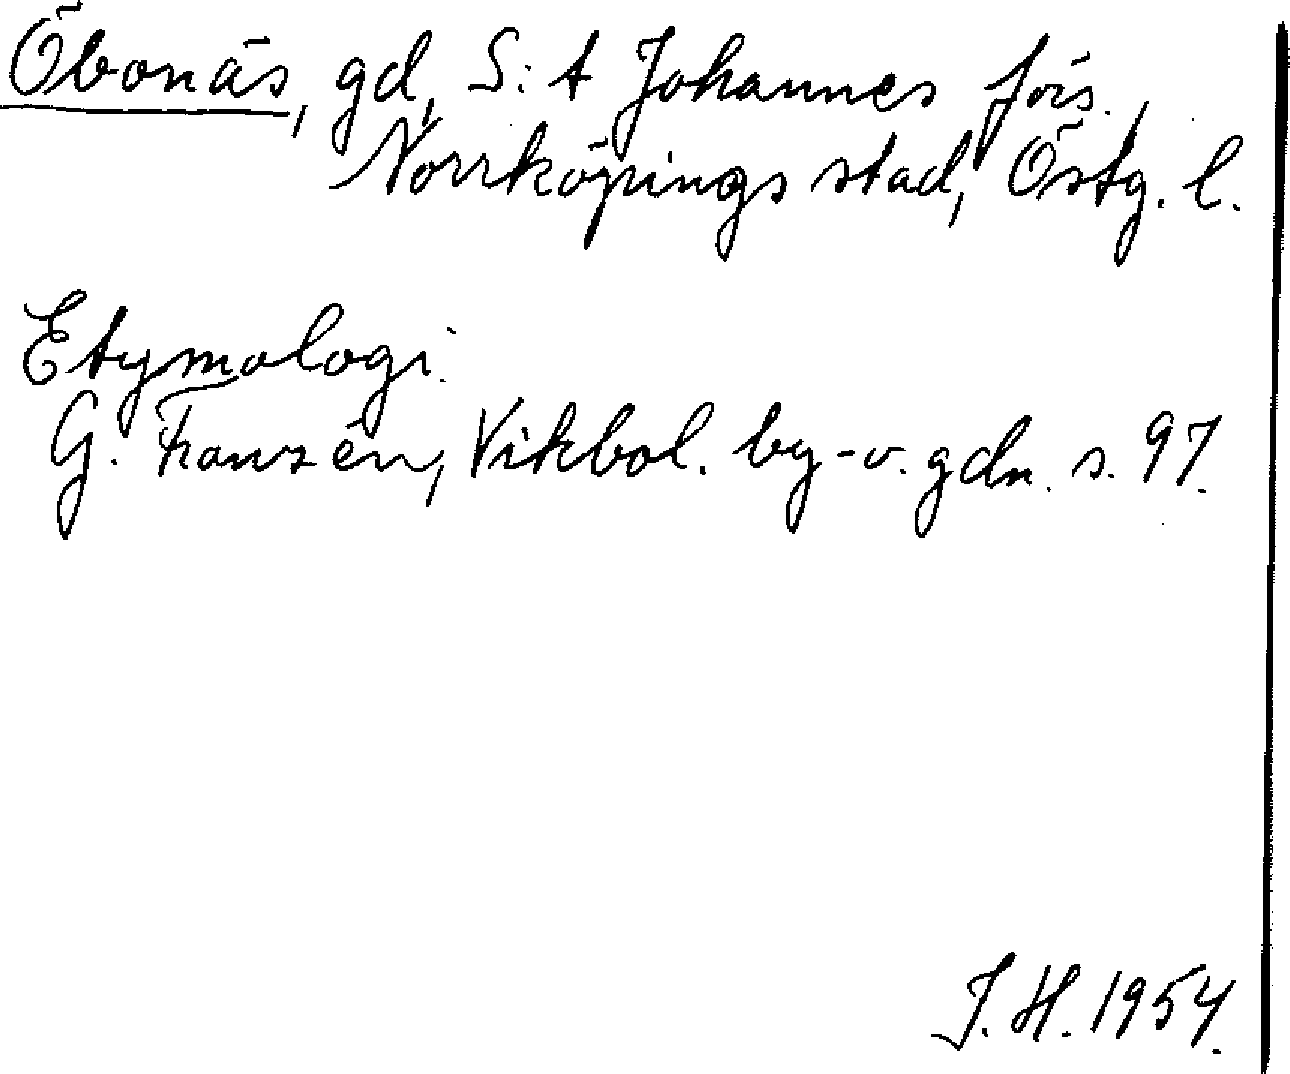 Öbonäs, gd, S:t Johannes förs.,
Norrköpings stad, Östg. l.
Etymologi.
G. Franzén, Vikbol. by- o. gdn. s. 97.
J. H. 1954.